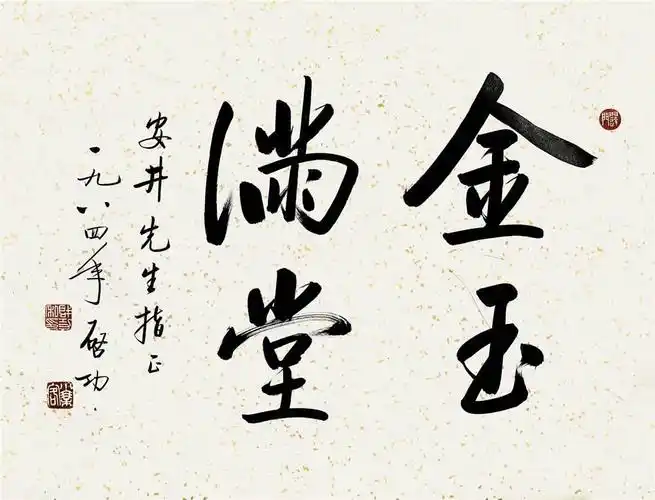 金玉
满堂
安井先生指正
一九八四年启功